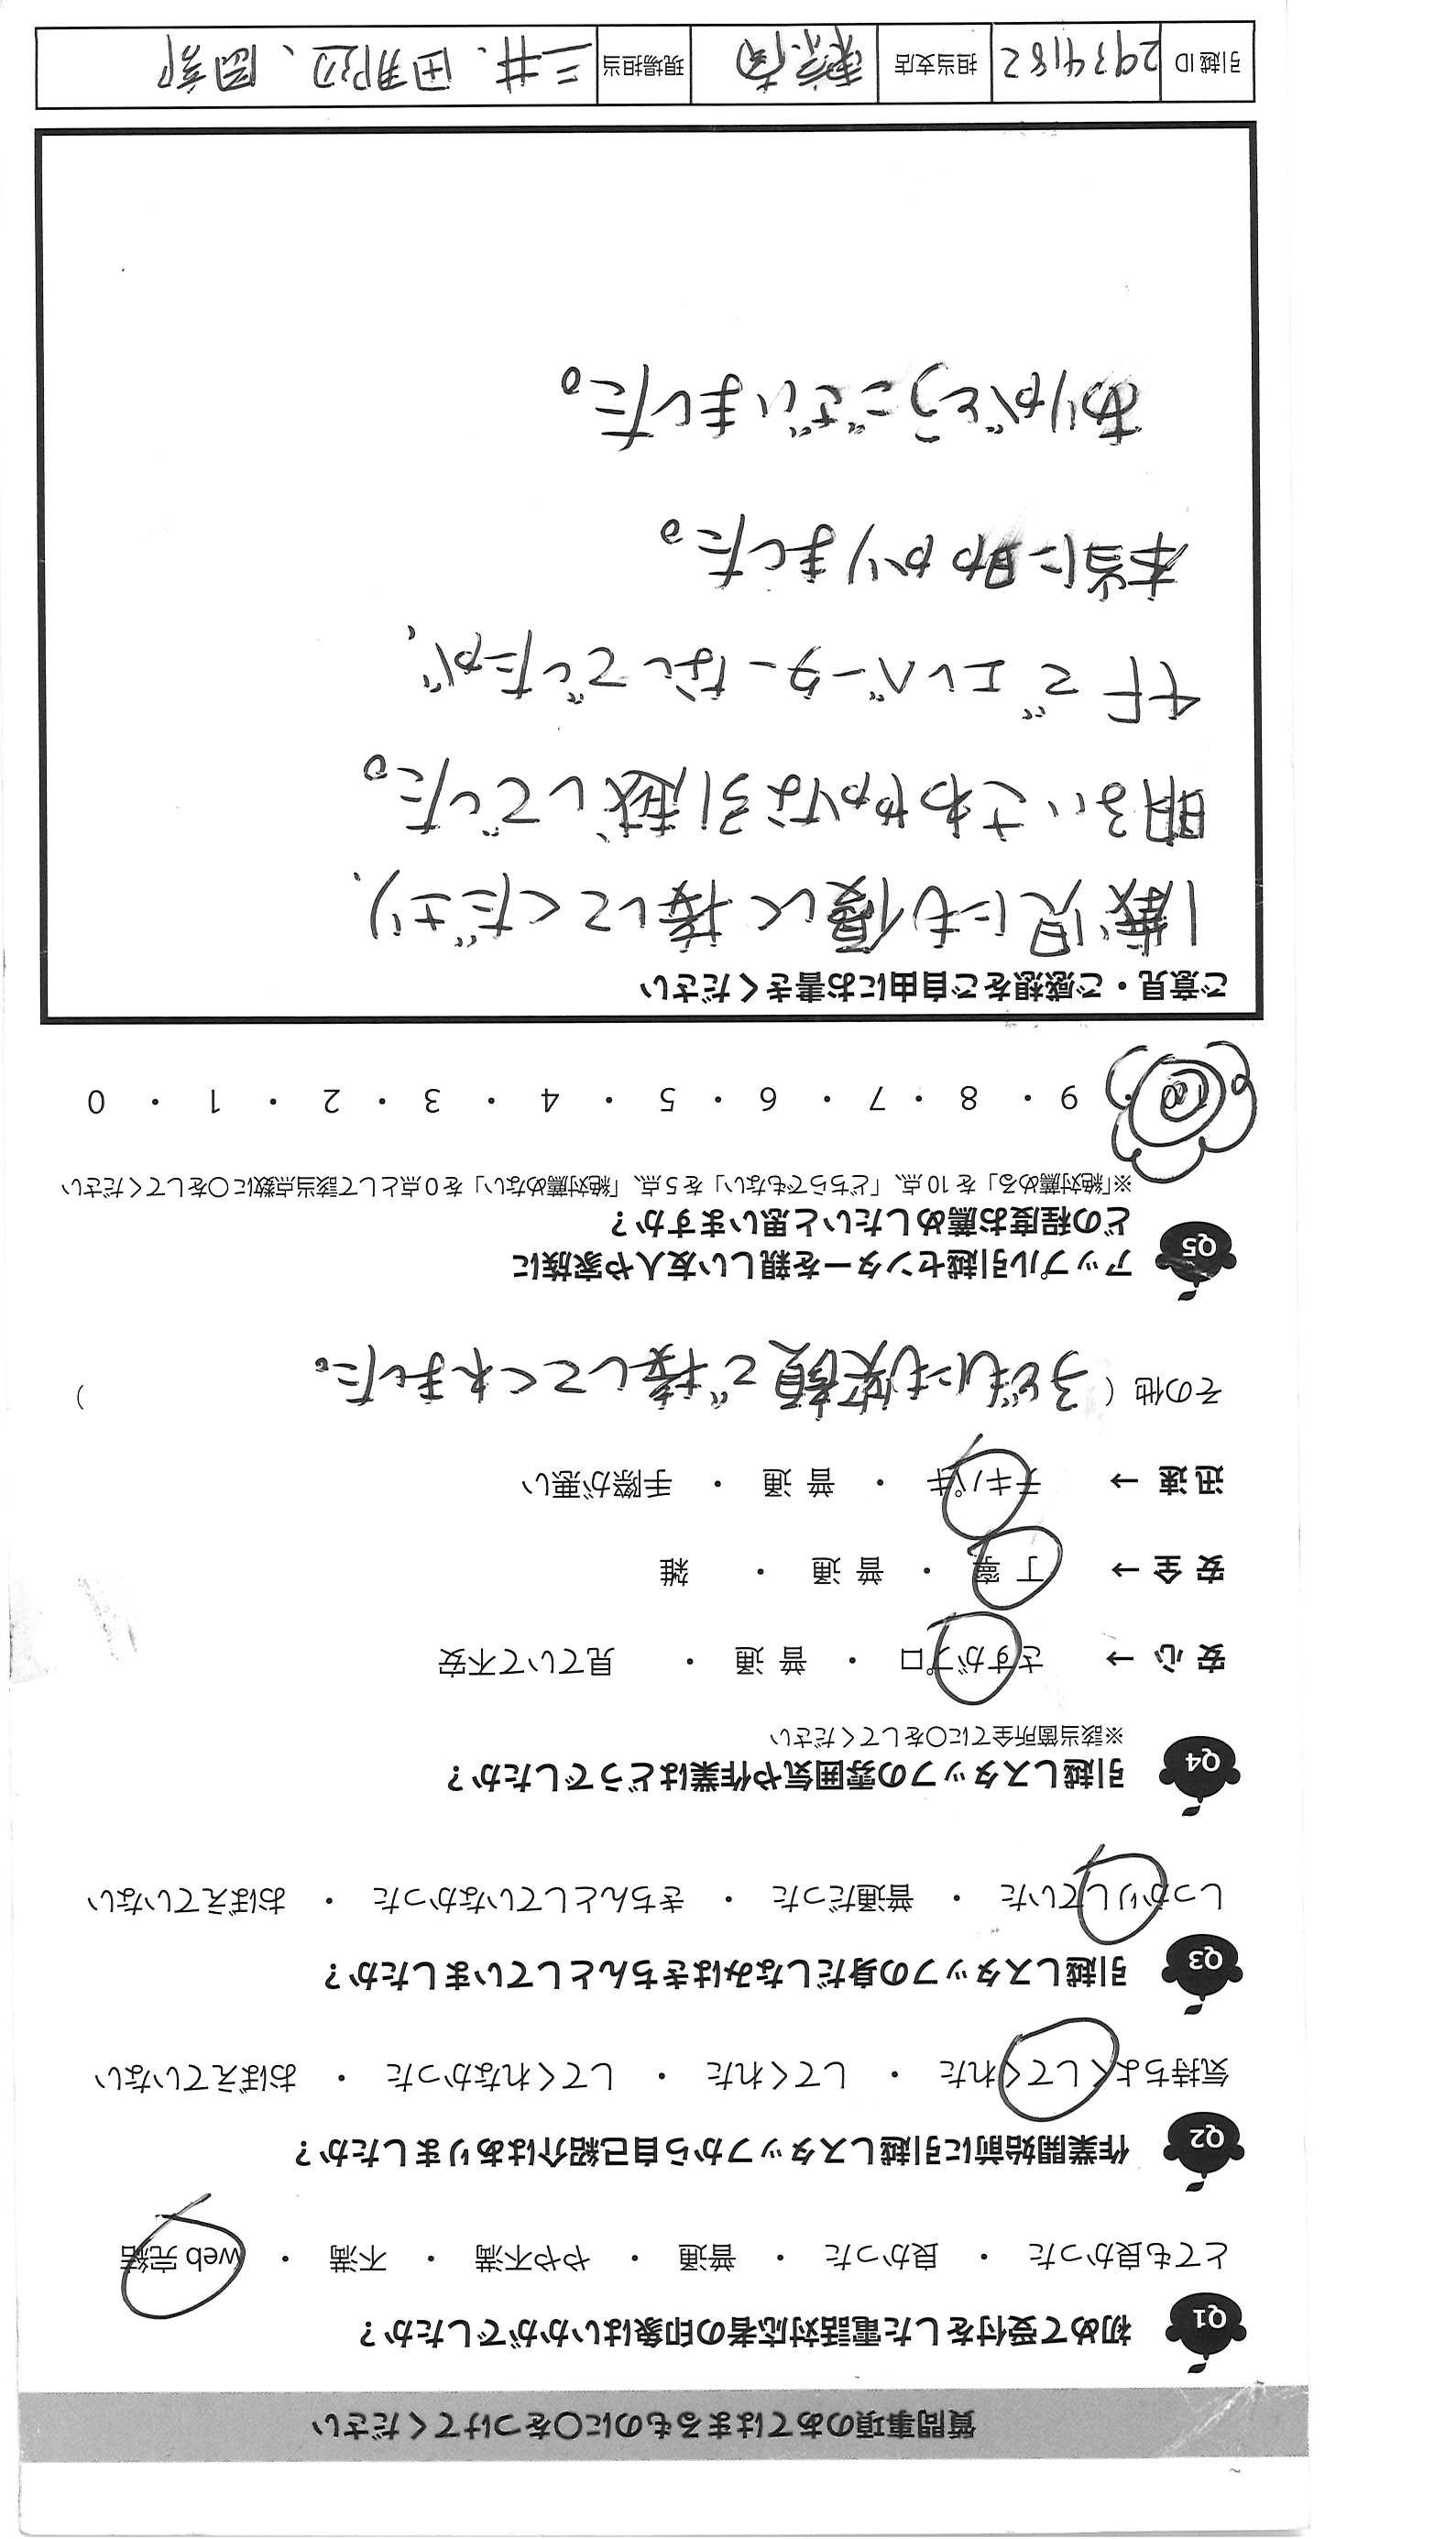 質問事項のあてはまるものに〇をつけてください
Q1 初めて受付をした電話対応者の印象はいかがでしたか？
とても良かった ・ 良かった ・ 普通 ・ やや不満 ・ 不満 ・ web 完結
Q2 作業開始前に引越しスタッフから自己紹介はありましたか？
気持ちよくしてくれた ・ してくれた ・ してくれなかった ・ おぼえていない
Q3 引越しスタッフの身だしなみはきちんとしていましたか？
しっかりしていた ・ 普通だった ・ きちんとしていなかった ・ おぼえていない
Q4 引越しスタッフの雰囲気や作業はどうでしたか？
※該当箇所全てに〇をしてください
安心 → さすがプロ ・ 普通 ・ 見ていて不安
安全 → 丁寧 ・ 普通 ・ 雑
迅速 → テキパキ ・ 普通 ・ 手際が悪い
その他 ( 子どもにも笑顔で接してくれました。 )
Q5 アップル引越センターを親しい友人や家族に
どの程度お薦めしたいと思いますか？
※「絶対薦める」を 10 点、「どちらでもない」を 5 点、「絶対薦めない」を 0 点として該当点数に〇をしてください
10 ・ 9 ・ 8 ・ 7 ・ 6 ・ 5 ・ 4 ・ 3 ・ 2 ・ 1 ・ 0
ご意見・ご感想をご自由にお書きください
1歳児にも優しく接してくださり、
明るいさわやかな引越しでした。
4Fでエレベーターなしでしたが、
本当に助かりました。
ありがとうございました。
引越 ID 2934182 担当支店 現場担当 三井、田那辺、岡部